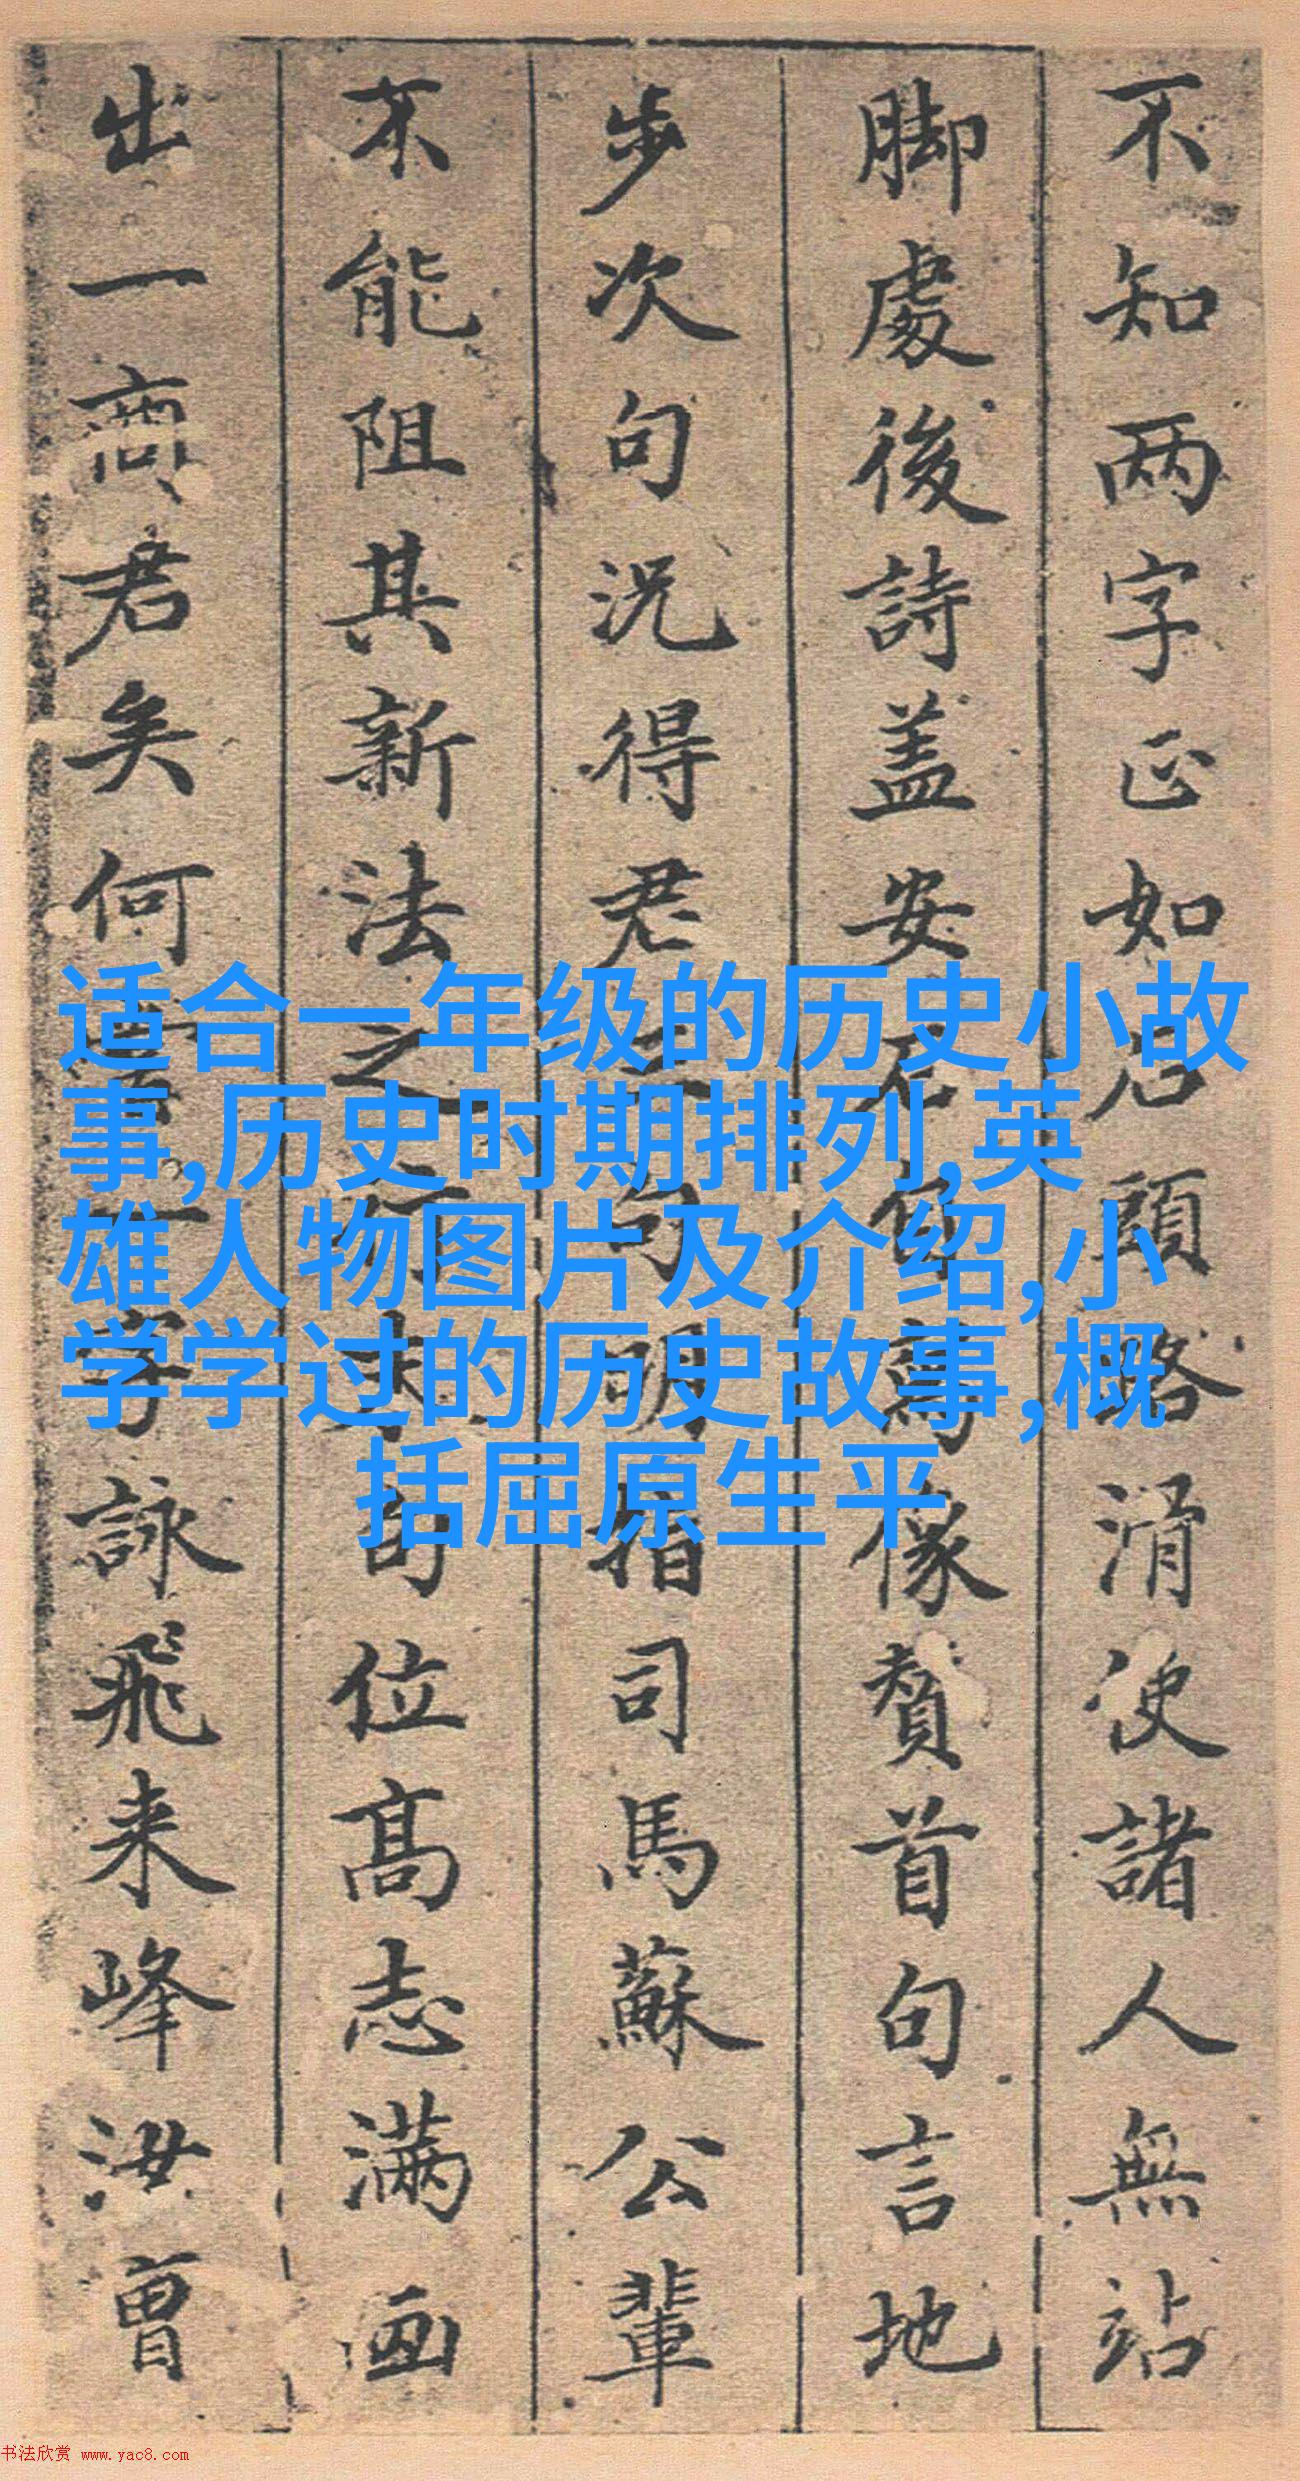 不知两字正如石頭路滑使諸人無站
脚處後詩蓋安石自寫像贊首句言地
步次句況得君三句明指司馬蘇公輩
不能阻其新法之行末句位高志滿画
出一商君矣何一字詠飛来峰汝曾
适合一年级的历史小故
事,历史时期排列,英
雄人物图片及介绍,小
学学过的历史故事,概
括屈原生平
书法欣赏 www.yac8.com